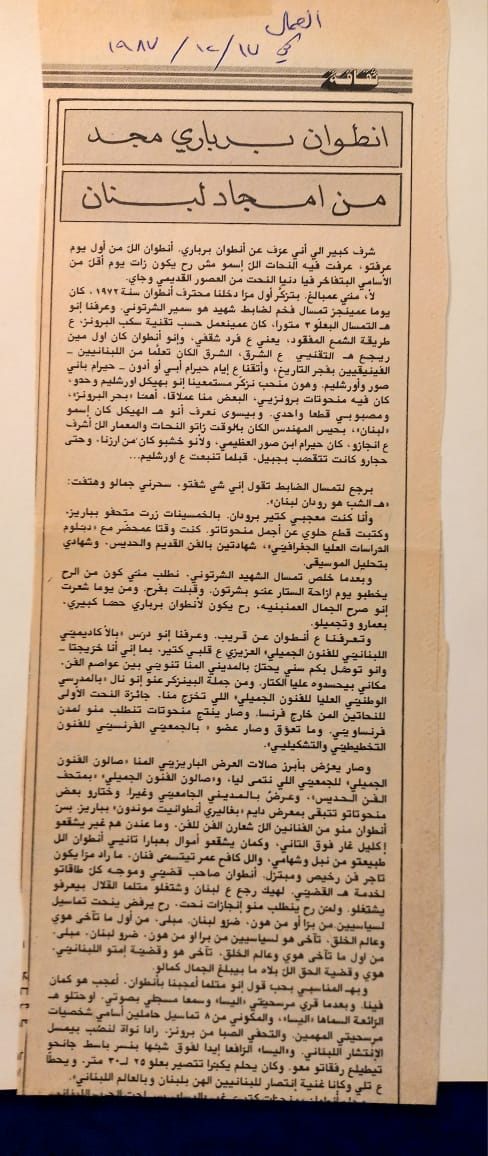 العمال
في ١٧/١٢/١٩٨٧
ثقافة
انطوان برباري مجد
من امجاد لبنان
شرف كبير الي أني عرّف عن أنطوان برباري. أنطوان اللّ من أول يوم
عرفتو، عرفت فيه النحات اللّ إسمو مش رح يكون زات يوم أقل من
الأسامي البتفاخر فيا دنيا النحت من العصور القديمي وجاي.
لأ، مني عمبالغ. بتزكّر أول مرّا دخلنا محترف أنطوان سنة ١٩٧٢، كان
يوما عمينجز تمسال فخم لضابط شهيد هو سمير الشرتوني. وعرفنا إنو
هـ التمسال البعلو ٣ متورا، كان عمينعمل حسب تقنية سكب البرونز، ع
طريقة الشمع المفقود، يعني ع فرد شقفي، وإنو أنطوان كان اول مين
ريجع هـ التقنيي ع الشرق، الشرق الكان تعلّما من اللبنانيين -
الفينيقيين بفجر التاريخ، وأتقنا ع إيام حيرام أبي أو أدون - حيرام باني
صور وأورشليم. وهون منحب نزكّر مستمعينا إنو بهيكل اورشليم وحدو،
كان فيه منحوتات برونزيي، البعض منا عملاقا، أهمّا «بحر البرونز»،
ومصبوبي قطعا واحدي. وبيسوى نعرف أنو هـ الهيكل كان إسمو
«لبنان»، بحيس المهندس الكان بالوقت زاتو النحات والمعمار اللّ أشرف
ع انجازو، كان حيرام ابن صور العظيمي، ولأنو خشبو كان من ارزنا، وحتى
حجارو كانت تتقصّب بجبيل، قبلما تنبعت ع اورشليم...
برجع لتمسال الضابط تقول إني شي شفتو، سحرني جمالو وهتفت:
«هـ الشب هو رودان لبنان».
وأنا كنت معجبي كتير برودان. بالخمسينات زرت متحفو بباريز،
وكتبت قطع حلوي عن أجمل منحوتاتو. كنت وقتا عمحضّر مع «دبلوم
الدراسات العليا الجغرافيي»، شهادتين بالفن القديم والحديس، وشهادي
بتحليل الموسيقى.
وبعدما خلص تمسال الشهيد الشرتوني، نطلب منّي كون من الرح
يخطبو يوم ازاحة الستار عنو بشرتون. وقبلت بفرح. ومن يوما شعرت
إنو صرح الجمال العمنبنيه، رح يكون لأنطوان برباري حصّا كبيري،
بعمارو وتجميلو.
وتعرفنا ع أنطوان عن قريب. وعرفنا إنو درَس «بالأكاديميي
اللبنانيي للفنون الجميلي» العزيزي ع قلبي كتير، بما إني أنا خرّيجتا -
وانو توصّل بكم سني يحتل بالمديني المنا تنويي بين عواصم الفن،
مكاني بيحسدوه عليا الكتار. ومن جملة البينزكر عنو إنو نال «بالمدرسي
الوطنيي العليا للفنون الجميلي» اللي تخرّج منا، جائزة النحت الأولى
للنحاتين المن خارج فرنسا. وصار ينتج منحوتات تنطلب منو لمدن
فرنساويي. وما تعوّق وصار عضو «بالجمعيي الفرنسيي للفنون
التخطيطيي والتشكيليي».
وصار يعرّض بأبرز صالات العرض الباريزيي المنا «صالون الفنون
الجميلي» للجمعيي اللي نتمى ليا، و«صالون الفنون الجميلي» «بمتحف
الفن الحديس»، وعرضْ بالمديني الجامعيي وغيرا. وختارو بعض
منحوتاتو تتبقى بمعرض دايم «بغاليري أنطوانيت موندون» بباريز. بسّ
أنطوان منو من الفنانين اللّ شعارن الفن للفن، وما عندن هم غير يشقعو
إكليل غار فوق التاني، وكمان يشقعو أموال بعبارا تانيي أنطوان اللّ
طبيعتو من نبل وشهامي، واللّ كافح عمر تيتسمّى فنان، ما راد مرّا يكون
تاجر فن رخيص ومبتزل. أنطوان صاحب قضيي وموجه كلّ طاقاتو
لخدمة هـ القضيي. لهيك رجع ع لبنان وشتغلو متلما القلال بيعرفو
يشتغلو. ولمّن رح ينطلب منو إنجازات نحت، رح يرفض ينحت تماسيل
لسياسيين من برّا أو من هون، ضرّو لبنان. مبلى، من أول ما تآخى هوي
وعالم الخلق، تآخى هو لسياسيين من برا او من هون، ضرو لبنان. مبلى،
من اول ما تآخى هوي وعالم الخلق، تآخى هو وقضية إمتو اللبنانيي.
هوي وقضية الحق اللّ بلاه ما بيبلغ الجمال كمالو.
وبهـ المناسبي بحب قول إنو متلما أعجبنا بأنطوان، أعجب هو كمان
فينا. وبعدما قري مسرحيتي «اليسا» وسمعا مسجّلي بصوتي، اوحتلو هـ
الرائعة السماها «اليسا»، والمكوني من ٨ تماسيل حاملين أسامي شخصيات
مسرحيتي المهمين. والتحفي الصبّا من برونز، رادا نواة لنصُب بيمسّل
الإنتشار اللبناني. و«اليسا» الرافعا إيدا لفوق شبّها بنسر باسط جانحو
تيطيلع رفقاتو معو. وكان يحلم يكبّرا تتصير بعلو ٢٥ لـ٣٠ متر، ويحطّا
ع تلي وكانا غنية إنتصار للبنانيين الهن بلبنان وبالعالم اللبناني».